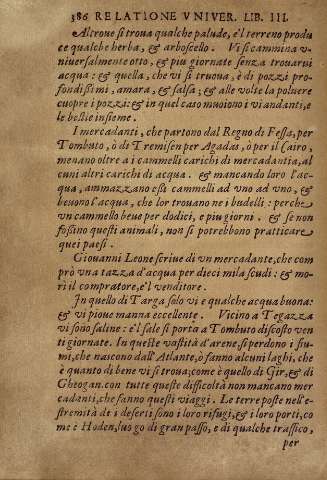 386 RELATIONE VNIVER. LIB. III.
Altroue si troua qualche palude, e'l terreno produ
ce qualche herba, & arboscello. Vi si camina v-
niuersalmente otto, & piu giornate senza trouarui
acqua: & quella, che vi si truoua, è di pozzi pro-
fondissimi, amara, & salsa; & alle volte la poluere
cuopre i pozzi: & in quel caso muoiono i viandanti, e
le bestie insieme.
I mercadanti, che partono dal Regno di Fessa, per
Tombuto, ò di Tremisen per Agadas, ò per il Cairo,
menano oltre a i cammelli carichi di mercadantia, al
cuni altri carichi di acqua. & mancando loro l'ac-
qua, ammazzano essi cammelli ad vno ad vno, &
beuono l'acqua, che lor trouano ne i budelli: perche
vn cammello beue per dodici, e piu giorni. & se non
fossino questi animali, non si potrebbono pratticare
quei paesi.
Giouanni Leone scriue di vn mercadante, che com
prò vna tazza d'acqua per dieci mila scudi: & mo-
ri il compratore, e'l venditore.
In quello di Targa solo vi e qualche acqua buona:
& vi pioue manna eccellente. Vicino a Tegazza
vi sono saline: e'l sale si porta a Tombuto discosto ven
ti giornate. In queste vastità d'arene, si perdono i fiu-
mi, che nascono dall'Atlante, ò fanno alcuni laghi, che
è quanto di bene vi si troua; come è quello di Gir, & di
Gheogan. con tutte queste difficoltà non mancano mer
cadanti, che fanno questi viaggi. Le terre poste nell'e-
stremità de i deserti sono i loro rifugi, & i loro porti, co
me è Hoden, luogo di gran passo, e di qualche traffico,
per